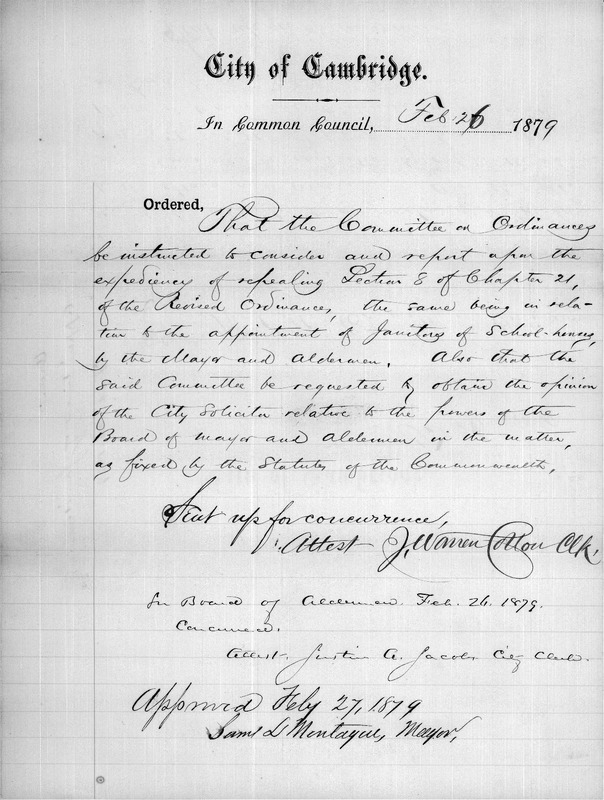 City of Cambridge.
In Common Council, Feb 26 1879
Ordered,
That the Committee on Ordinances
be instructed to consider and report upon the
expediency of repealing Section 8 of Chapter 21,
of the Revised Ordinances, the same being in rela-
tion to the appointment of Janitors of School-houses,
by the Mayor and Aldermen. Also that the
said Committee be requested to obtain the opinion
of the City Solicitor relative to the powers of the
Board of Mayor and Aldermen in the matter,
as fixed by the Statutes of the Commonwealth,
Sent up for concurrence,
Attest J. Warren Cotton Clk.
In Board of Aldermen. Feb. 26. 1879.
Concurred.
Attest, Justin A. Jacobs City Clerk.
Approved Feby 27, 1879
Saml L Montague, Mayor,